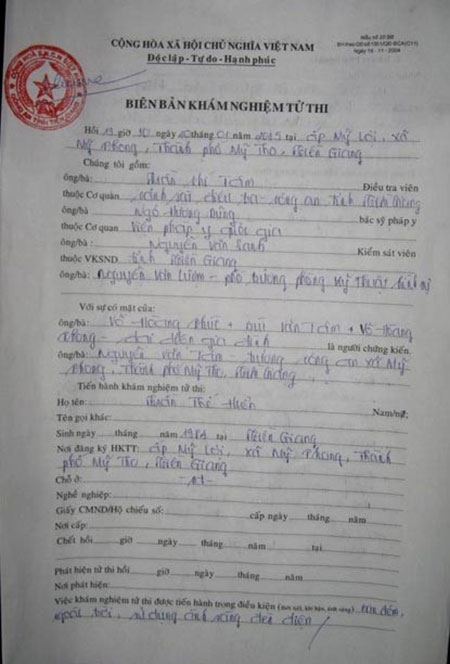 Mẫu số
CỘNG HÒA XÃ HỘI CHỦ NGHĨA VIỆT NAM
Độc lập - Tự do - Hạnh phúc
BIÊN BẢN KHÁM NGHIỆM TỬ THI
Hồi 19 giờ 30 ngày 10 tháng 01 năm 2015 tại ấp Mỹ Lợi, xã
Mỹ Phong, Thành phố Mỹ Tho, Tiền Giang
Chúng tôi gồm:
ông/bà: Điều tra viên
thuộc Cơ quan cảnh sát điều tra - công an tỉnh Tiền Giang
ông/bà bác sỹ pháp y
thuộc Cơ quan Viện pháp y quốc gia
ông/bà : Nguyễn Văn Kiểm sát viên
thuộc VKSND tỉnh Tiền Giang
ông/bà: Nguyễn Văn - phó trưởng phòng kỹ thuật hình sự
Với sự có mặt của:
ông/bà: Võ Hoàng Phúc + Bùi Văn + Võ Hoàng
- đại diện gia đình là người chứng kiến.
ông/bà: Nguyễn Văn - trưởng công an xã Mỹ
Phong, Thành phố Mỹ Tho, Tiền Giang
Tiến hành khám nghiệm tử thi:
Họ tên: Thế Hiền Nam/nữ:
Tên gọi khác:
Sinh ngày tháng năm 1984 tại Tiền Giang
Nơi đăng ký HKTT: ấp Mỹ Lợi, xã Mỹ Phong, Thành
phố Mỹ Tho, Tiền Giang
Chỗ ở:
Nghề nghiệp:
Giấy CMND/Hộ chiếu số: cấp ngày tháng năm
Nơi cấp:
Chết hồi giờ ngày tháng năm tại
Phát hiện tử thi hồi giờ ngày tháng năm
Nơi phát hiện:
Việc khám nghiệm tử thi được tiến hành trong điều kiện ban đêm,
ngoài trời, sử dụng ánh sáng đèn điện